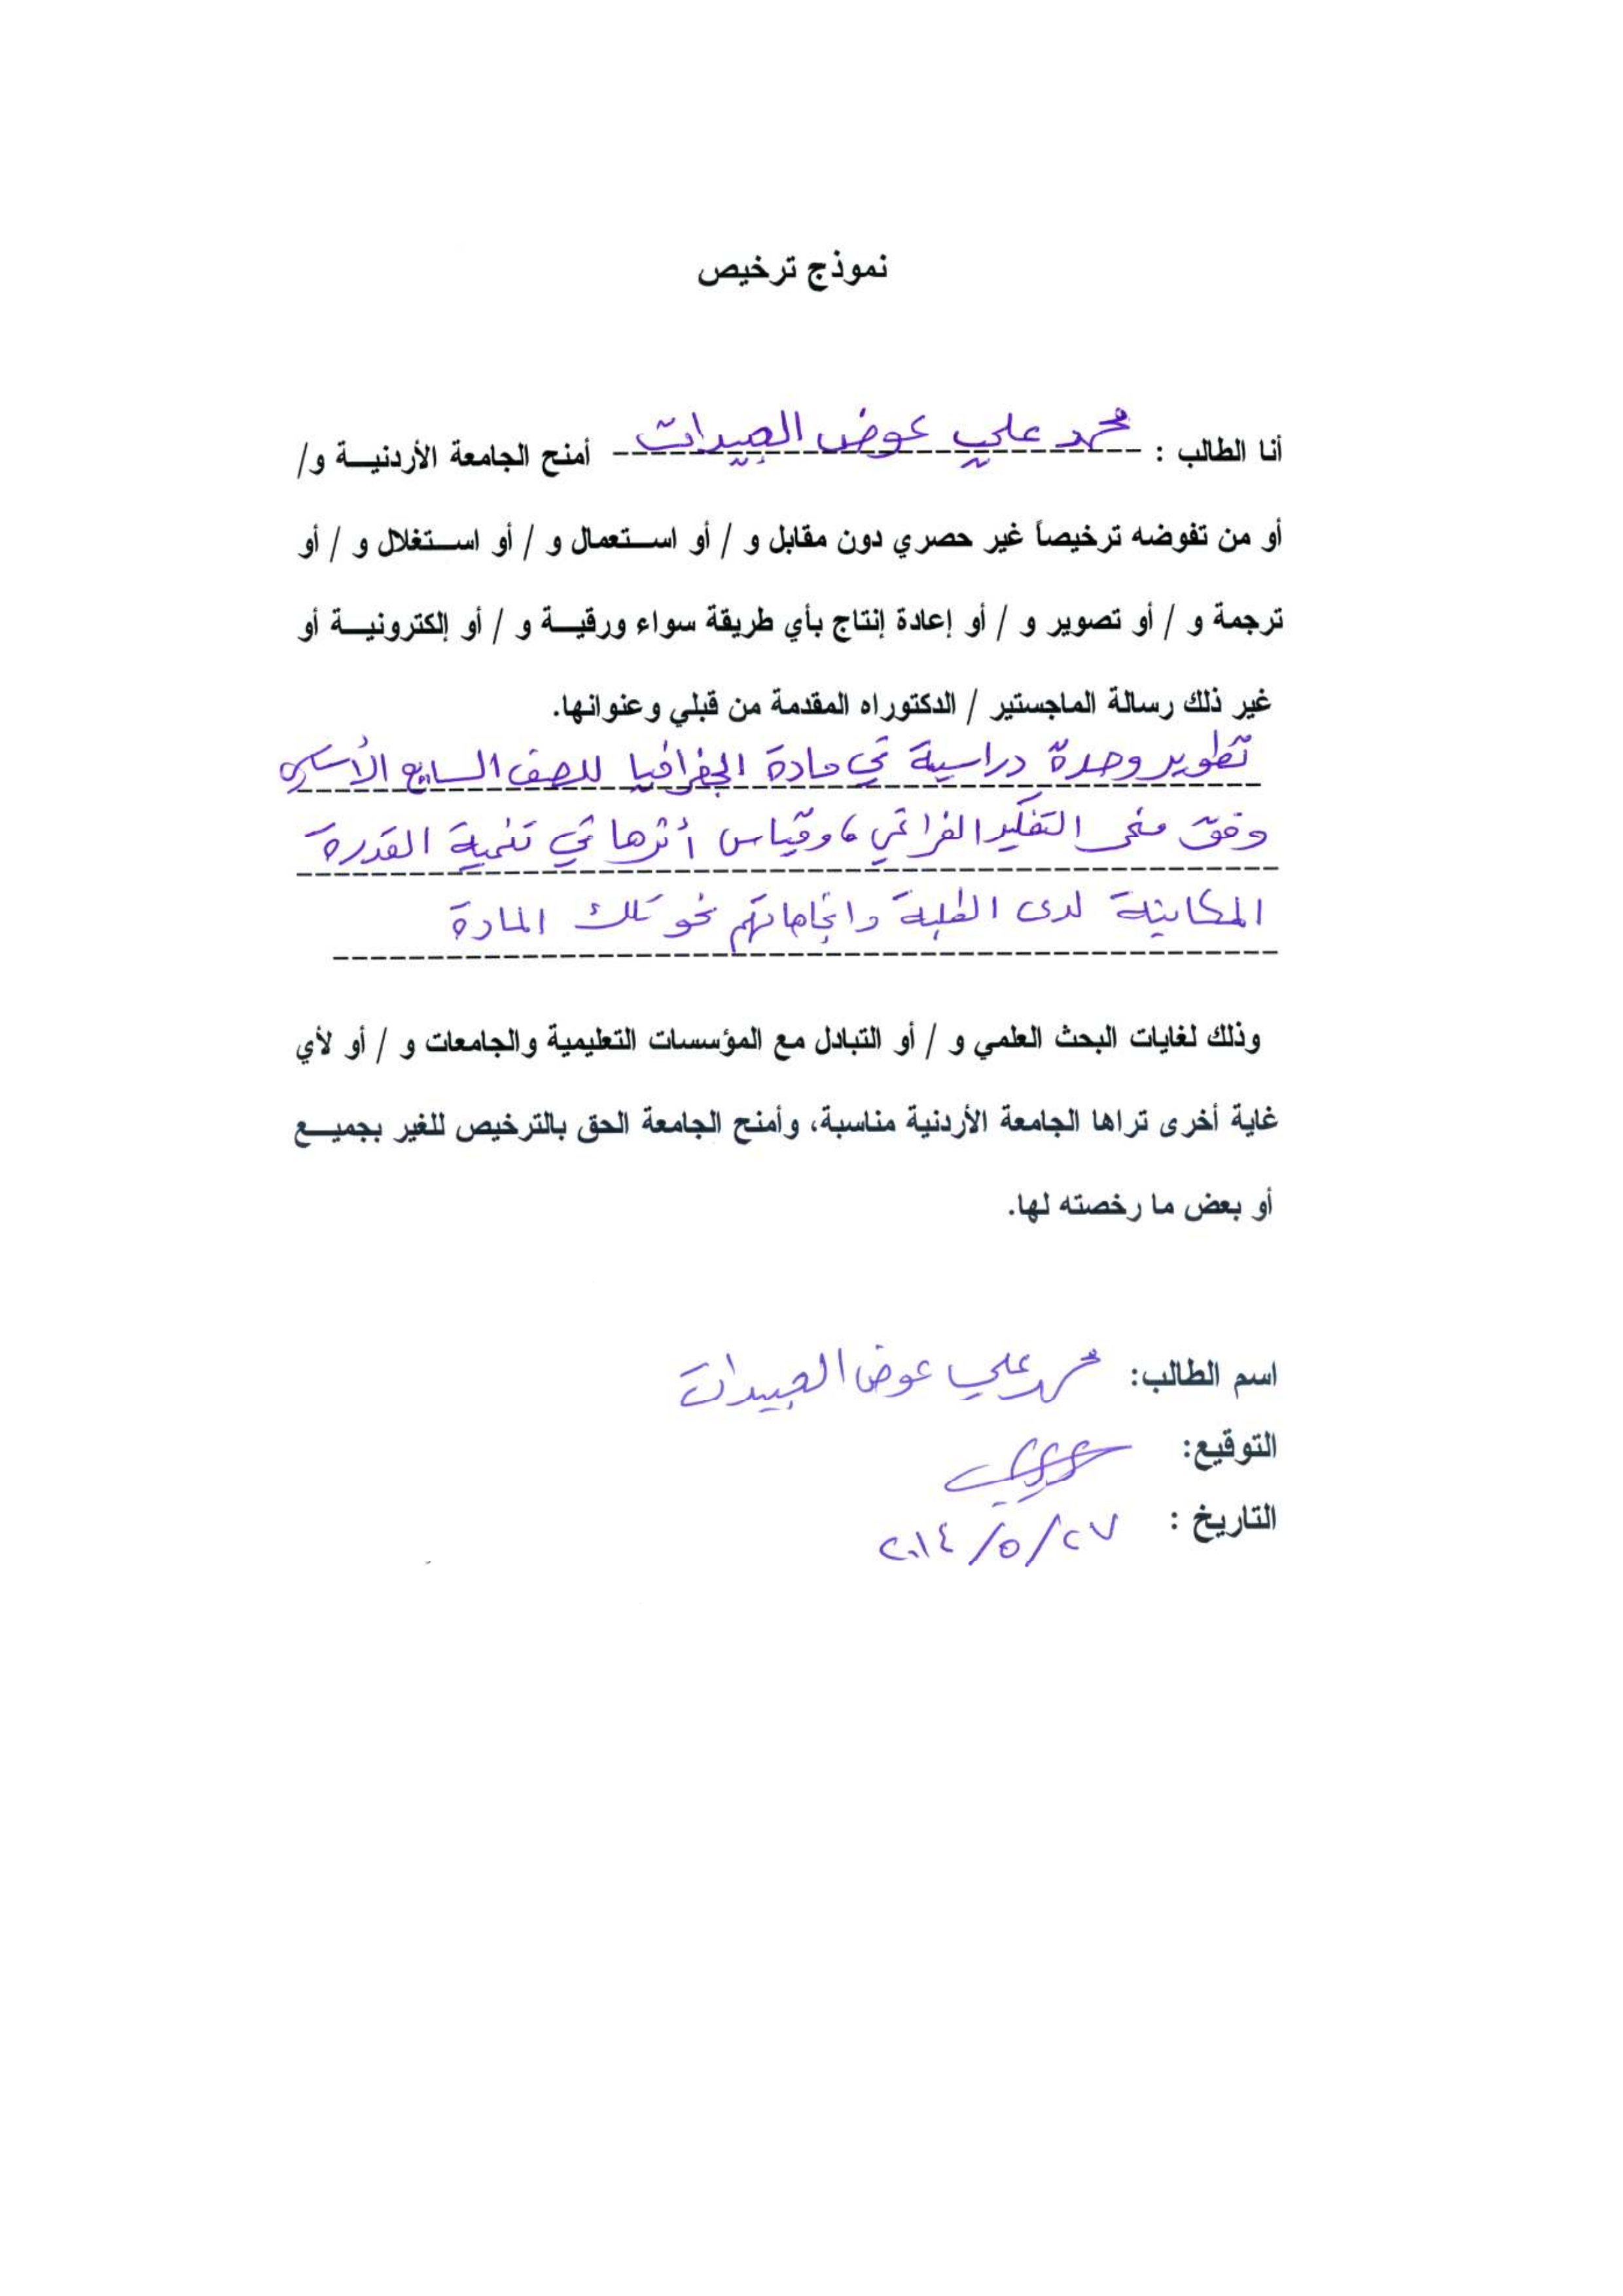 نموذج ترخيص
أنا الطالب : محمد علي عوض العبيدات أمنح الجامعة الأردنيـــة و/
أو من تفوضه ترخيصاً غير حصري دون مقابل و / أو اســتعمال و / أو اســتغلال و / أو
ترجمة و / أو تصوير و / أو إعادة إنتاج بأي طريقة سواء ورقيـــة و / أو إلكترونيـــة أو
غير ذلك رسالة الماجستير / الدكتوراه المقدمة من قبلي وعنوانها.
تطوير وحدة دراسية في مادة الجغرافيا للصف السابع الأساسي
وفق منحى التفكير الفراغي، وقياس أثرها في تنمية القدرة
المكانية لدى الطلبة واتجاهاتهم نحو تلك المادة
وذلك لغايات البحث العلمي و / أو التبادل مع المؤسسات التعليمية والجامعات و / أو لأي
غاية أخرى تراها الجامعة الأردنية مناسبة، وأمنح الجامعة الحق بالترخيص للغير بجميـــع
أو بعض ما رخصته لها.
اسم الطالب: محمد علي عوض العبيدات
التوقيع:
التاريخ : ٢٧/٥/٢٠١٤